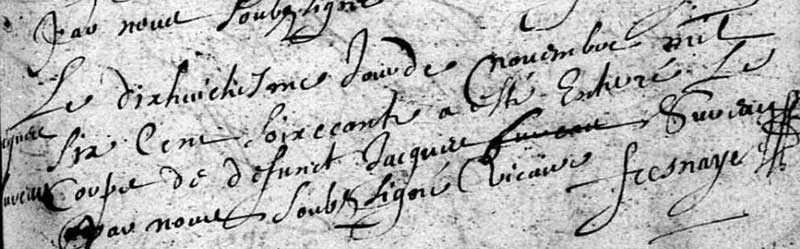 Par nous Soubzsigné
Le dixhuictiesme Jour de novembre mil
Six Cent Soixecante a esté Enterré Le
Corps de defunct Jacques Sureau
Par nous Soubzsigné Vicaire fresnaye